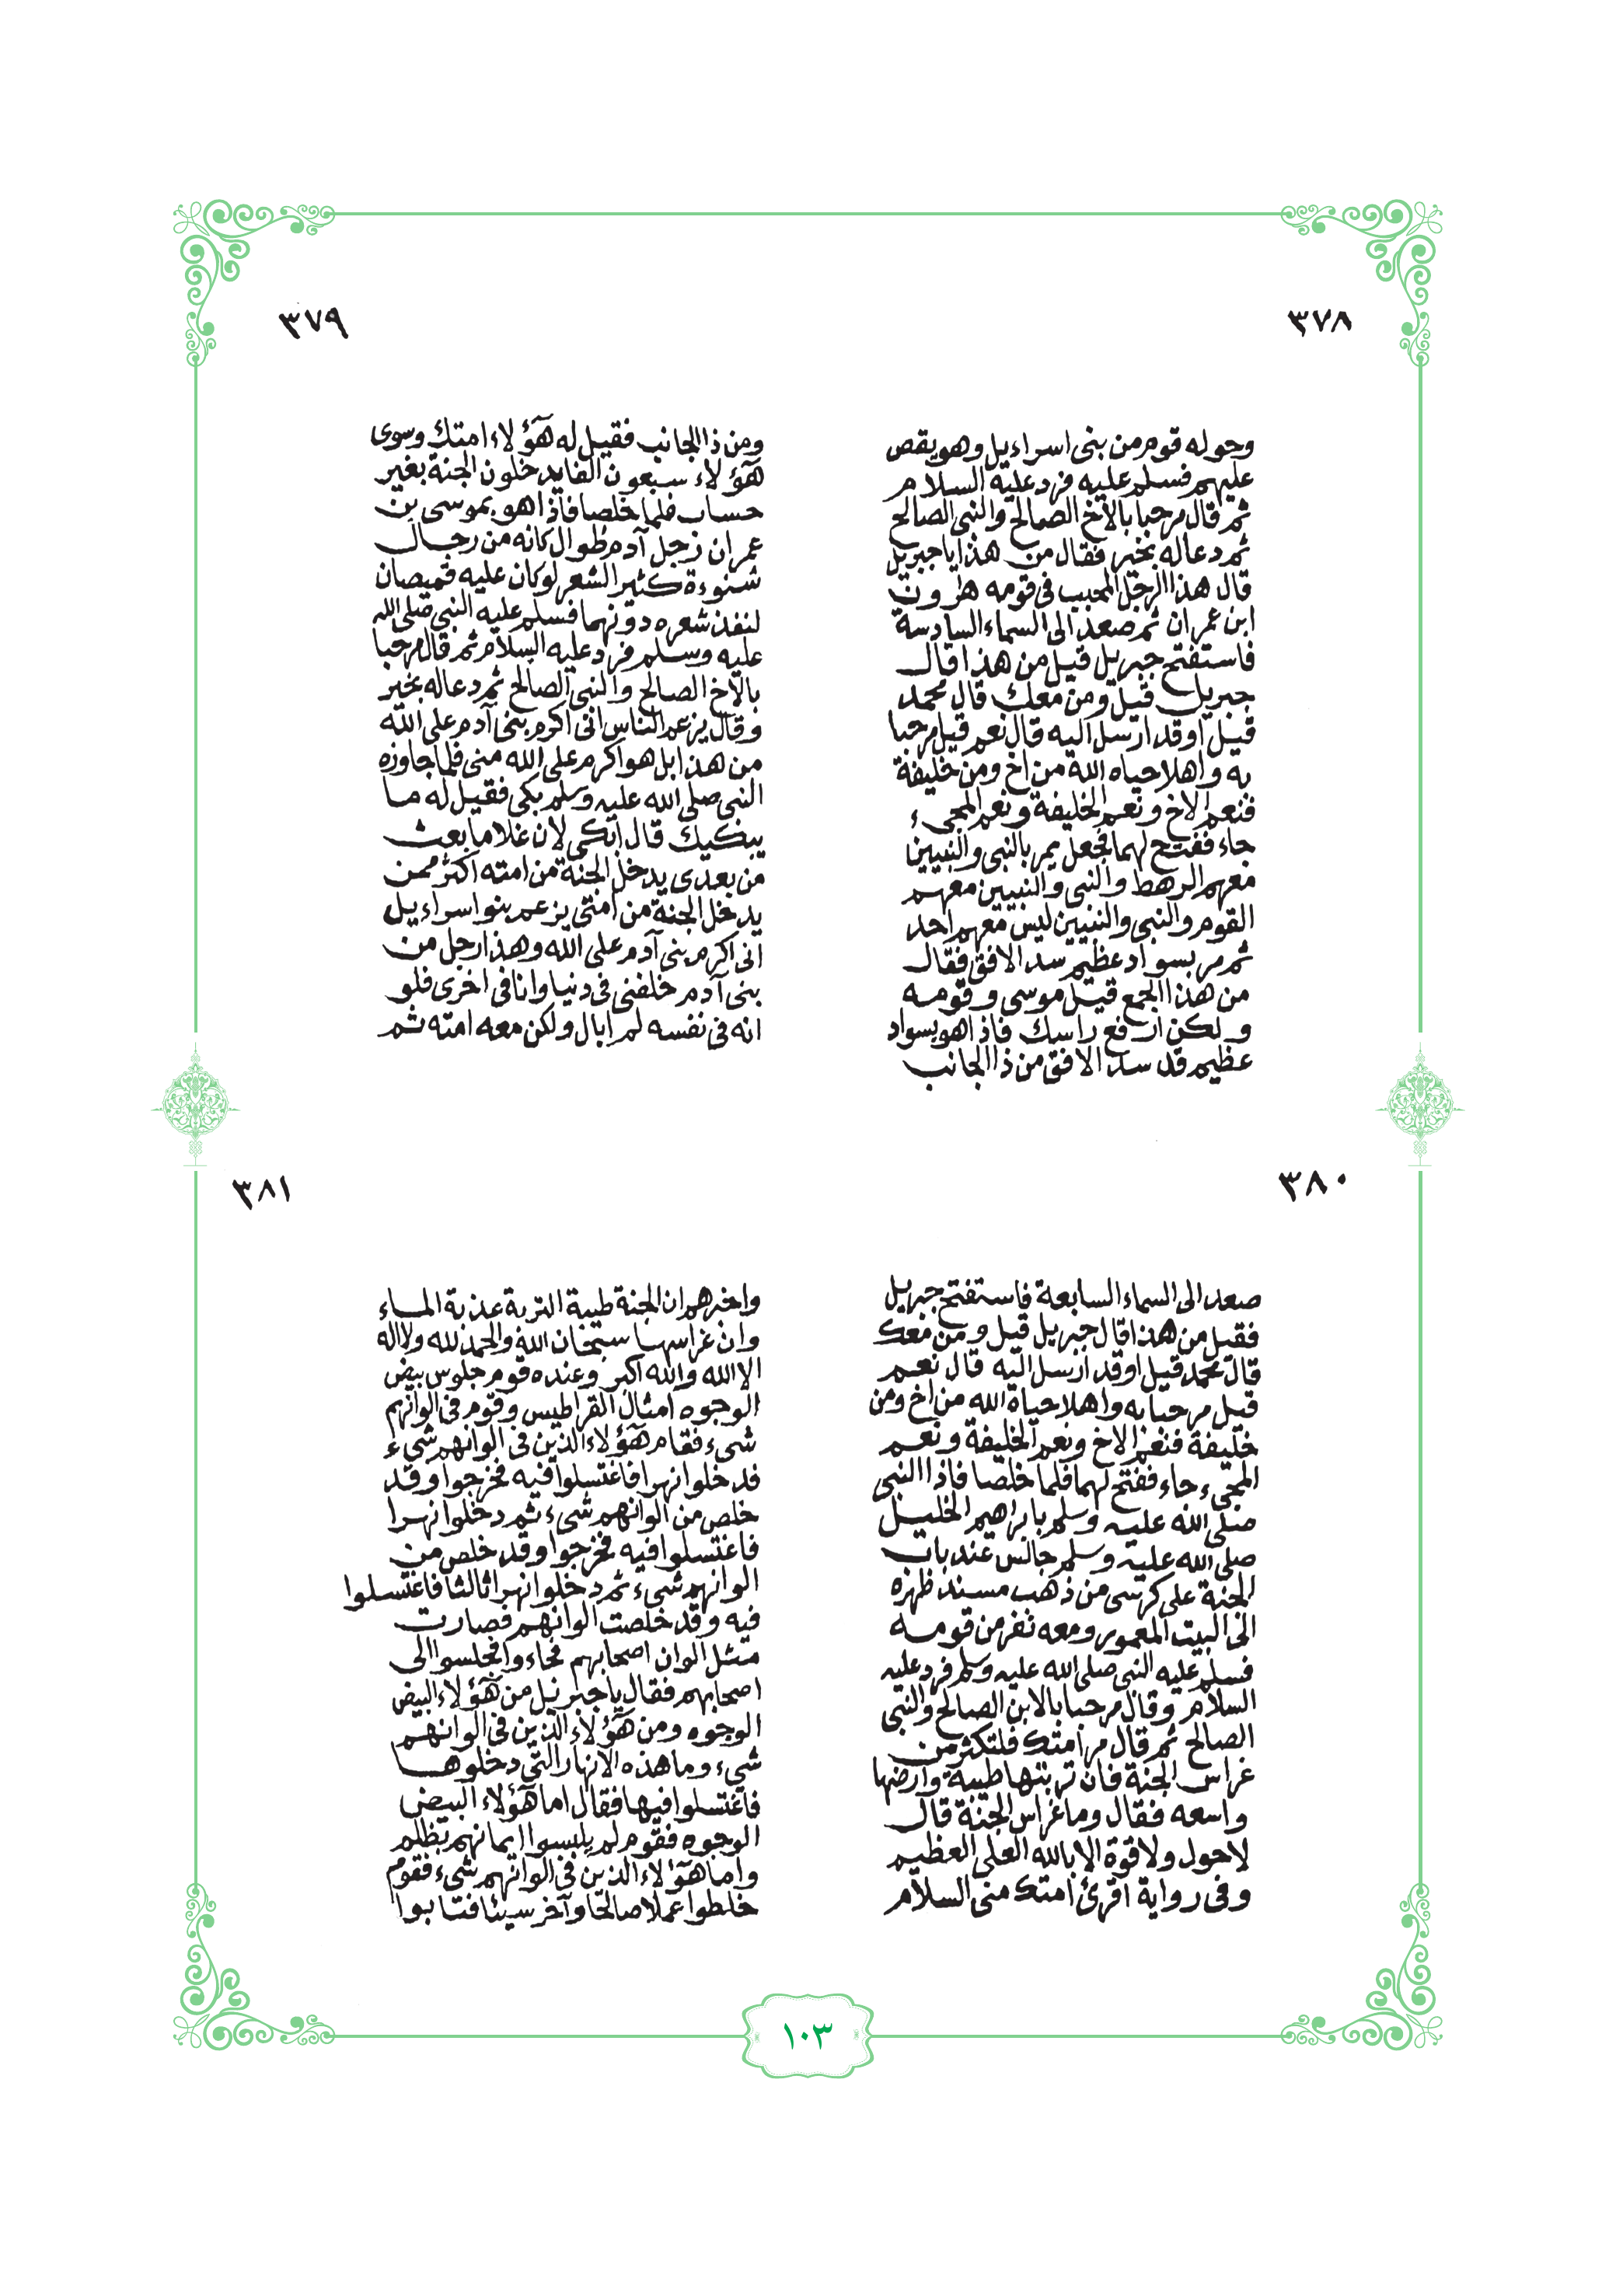 ٣٧٨
وحوله قوم من بنى اسراءيل وهو يقص
عليهم فسلم عليه فرد عليه السلام
ثم قال مرحبا بالاخ الصالح والنبى الصالح
ثم دعا له بخير فقال من هذا يا جبريل
قال هذا الرجل المحبب فى قومه هرون
ابن عمران ثم صعد الى السماء السادسة
فاستفتح جبريل قيل من هذا قال
جبريل قيل ومن معك قال محمد
قيل اوقد ارسل اليه قال نعم قيل مرحبا
به واهلا حياه الله من اخ ومن خليفة
فنعم الاخ ونعم الخليفة ونعم المجىء
جاء ففتح لهما فجعل يمر بالنبى والنبيين
معهم الرهط والنبى والنبيين معهم
القوم والنبى والنبيين ليس معهم احد
ثم مر بسواد عظيم سد الافق فقال
من هذا الجمع قيل موسى وقومه
ولكن ارفع راسك فاذا هو بسواد
عظيم قد سد الافق من ذا الجانب
٣٧٩
ومن ذا الجانب فقيل له هؤلاء امتك وسوى
هؤلاء سبعون الفا يدخلون الجنة بغير
حساب فلما خلصا فاذا هو بموسى بن
عمران رجل آدم طوال كانه من رجال
شنوءة كثير الشعر لو كان عليه قميصان
لنفذ شعره دونهما فسلم عليه النبى صلى الله
عليه وسلم فرد عليه السلام ثم قال مرحبا
بالاخ الصالح والنبى الصالح ثم دعا له بخير
وقال يزعم الناس انى اكرم بنى آدم على الله
من هذا بل هو اكرم على الله منى فلما جاوزه
النبى صلى الله عليه وسلم بكى فقيل له ما
يبكيك قال ابكى لان غلاما بعث
من بعدى يدخل الجنة من امته اكثر ممن
يدخل الجنة من امتى يزعم بنو اسراءيل
انى اكرم بنى آدم على الله وهذا رجل من
بنى آدم خلفنى فى دنيا وانا فى اخرى فلو
انه فى نفسه لم ابال ولكن معه امته ثم
٣٨٠
صعد الى السماء السابعة فاستفتح جبريل
فقيل من هذا قال جبريل قيل ومن معك
قال محمد قيل اوقد ارسل اليه قال نعم
قيل مرحبا به واهلا حياه الله من اخ ومن
خليفة فنعم الاخ ونعم الخليفة ونعم
المجىء جاء ففتح لهما فلما خلصا فاذا النبى
صلى الله عليه وسلم بابراهيم الخليل
صلى الله عليه وسلم جالس عند باب
الجنة على كرسى من ذهب مسند ظهره
الى البيت المعمور ومعه نفر من قومه
فسلم عليه النبى صلى الله عليه وسلم فرد عليه
السلام وقال مرحبا بالابن الصالح والنبى
الصالح ثم قال مر امتك فلتكثر من
غراس الجنة فان تربتها طيبة وارضها
واسعه فقال وما غراس الجنة قال
لا حول ولا قوة الا بالله العلى العظيم
وفى رواية اقرئ امتك منى السلام
٣٨١
واخبرهم ان الجنة طيبة التربة عذبة الماء
وان غراسها سبحان الله والحمد لله ولا اله
الا الله والله اكبر وعنده قوم جلوس بيض
الوجوه امثال القراطيس وقوم فى الوانهم
شىء فقام هؤلاء الذين فى الوانهم شىء
فدخلوا نهرا فاغتسلوا فيه فخرجوا وقد
خلص من الوانهم شىء ثم دخلوا نهرا
فاغتسلوا فيه فخرجوا وقد خلص من
الوانهم شىء ثم دخلوا نهرا ثالثا فاغتسلوا
فيه وقد خلصت الوانهم فصارت
مثل الوان اصحابهم فجاءوا فجلسوا الى
اصحابهم فقال يا جبريل من هؤلاء البيض
الوجوه ومن هؤلاء الذين فى الوانهم
شىء وما هذه الانهار التى دخلوها
فاغتسلوا فيها فقال اما هؤلاء البيض
الوجوه فقوم لم يلبسوا ايمانهم بظلم
واما هؤلاء الذين فى الوانهم شىء فقوم
خلطوا عملا صالحا وآخر سيئا فتابوا
١٠٣